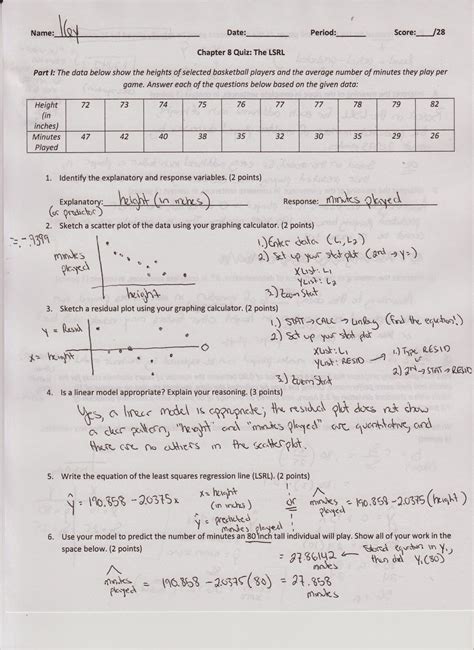 Name: Key Date: Period: Score: /28
Chapter 8 Quiz: The LSRL
Part I: The data below show the heights of selected basketball players and the average number of minutes they play per
game. Answer each of the questions below based on the given data:
Height (in inches) 72 73 74 75 76 77 77 78 79 82
Minutes Played 47 42 40 38 35 32 30 35 29 26
1. Identify the explanatory and response variables. (2 points)
Explanatory: height (in inches) Response: minutes played
(or predictor)
2. Sketch a scatter plot of the data using your graphing calculator. (2 points)
r = -.9399
minutes played
height
1.) Enter data (L1, L2)
2) Set up your stat plot (2nd → y=)
XList: L1
YList: L2
3.) ZoomStat
3. Sketch a residual plot using your graphing calculator. (2 points)
y = Resid
x = height
1.) STAT → CALC → LinReg (Find the equation!)
2) Set up your stat plot
XList: L1
YList: RESID → 1.) Type RESID
2) 2nd → STAT → RESID
3.) ZoomStat
4. Is a linear model appropriate? Explain your reasoning. (3 points)
Yes, a linear model is appropriate; the residual plot does not show
a clear pattern, "height" and "minutes played" are quantitative, and
there are no outliers in the scatterplot.
5. Write the equation of the least squares regression line (LSRL). (2 points)
ŷ = 190.858 - 2.0375x
x = height (in inches)
ŷ = predicted minutes played
or minutes played = 190.858 - 2.0375 (height)
6. Use your model to predict the number of minutes an 80 inch tall individual will play. Show all of your work in the
space below. (2 points)
= 27.86142 ← Stored equation in Y1, then did Y1(80)
minutes played = 190.858 - 2.0375(80) = 27.858 minutes